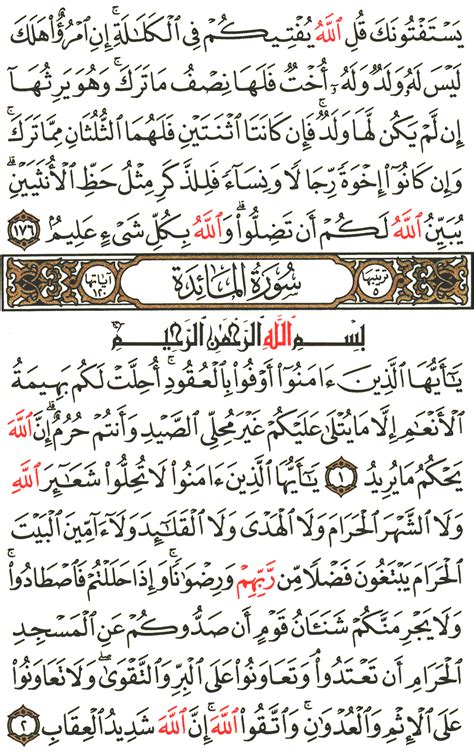 يَسْتَفْتُونَكَ قُلِ ٱللَّهُ يُفْتِيكُمْ فِى ٱلْكَلَٰلَةِ ۚ إِنِ ٱمْرُؤٌا۟ هَلَكَ
لَيْسَ لَهُۥ وَلَدٌ وَلَهُۥٓ أُخْتٌ فَلَهَا نِصْفُ مَا تَرَكَ ۚ وَهُوَ يَرِثُهَآ
إِن لَّمْ يَكُن لَّهَا وَلَدٌ ۚ فَإِن كَانَتَا ٱثْنَتَيْنِ فَلَهُمَا ٱلثُّلُثَانِ مِمَّا تَرَكَ ۚ
وَإِن كَانُوٓا۟ إِخْوَةً رِّجَالًا وَنِسَآءً فَلِلذَّكَرِ مِثْلُ حَظِّ ٱلْأُنثَيَيْنِ ۗ
يُبَيِّنُ ٱللَّهُ لَكُمْ أَن تَضِلُّوا۟ ۗ وَٱللَّهُ بِكُلِّ شَىْءٍ عَلِيمٌۢ ١٧٦
ترتيبها ٥ سُورَةُ المَائِدَةِ آياتها ١٢٠
بِسْمِ ٱللَّهِ ٱلرَّحْمَٰنِ ٱلرَّحِيمِ
يَٰٓأَيُّهَا ٱلَّذِينَ ءَامَنُوٓا۟ أَوْفُوا۟ بِٱلْعُقُودِ ۚ أُحِلَّتْ لَكُم بَهِيمَةُ
ٱلْأَنْعَٰمِ إِلَّا مَا يُتْلَىٰ عَلَيْكُمْ غَيْرَ مُحِلِّى ٱلصَّيْدِ وَأَنتُمْ حُرُمٌ ۗ إِنَّ ٱللَّهَ
يَحْكُمُ مَا يُرِيدُ ١ يَٰٓأَيُّهَا ٱلَّذِينَ ءَامَنُوا۟ لَا تُحِلُّوا۟ شَعَٰٓئِرَ ٱللَّهِ
وَلَا ٱلشَّهْرَ ٱلْحَرَامَ وَلَا ٱلْهَدْىَ وَلَا ٱلْقَلَٰٓئِدَ وَلَآ ءَآمِّينَ ٱلْبَيْتَ
ٱلْحَرَامَ يَبْتَغُونَ فَضْلًا مِّن رَّبِّهِمْ وَرِضْوَٰنًا ۚ وَإِذَا حَلَلْتُمْ فَٱصْطَادُوا۟ ۚ
وَلَا يَجْرِمَنَّكُمْ شَنَـَٔانُ قَوْمٍ أَن صَدُّوكُمْ عَنِ ٱلْمَسْجِدِ
ٱلْحَرَامِ أَن تَعْتَدُوا۟ ۘ وَتَعَاوَنُوا۟ عَلَى ٱلْبِرِّ وَٱلتَّقْوَىٰ ۖ وَلَا تَعَاوَنُوا۟
عَلَى ٱلْإِثْمِ وَٱلْعُدْوَٰنِ ۚ وَٱتَّقُوا۟ ٱللَّهَ ۖ إِنَّ ٱللَّهَ شَدِيدُ ٱلْعِقَابِ ٢